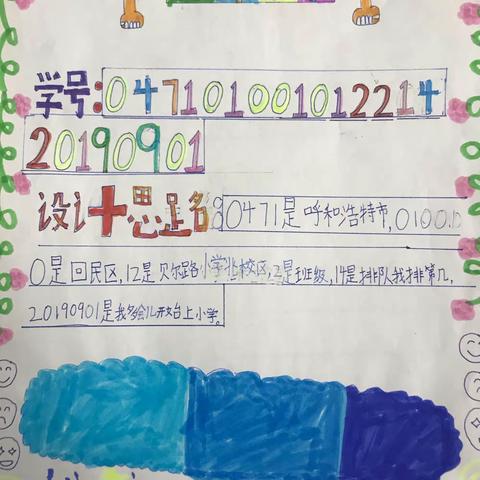 学号:047101001012214
20190901
设计+思路:0471是呼和浩特市,01001
0是回民区,12是贝尔路小学北校区,2是班级,14是排队我排第几,
20190901是我多会儿开始上小学。